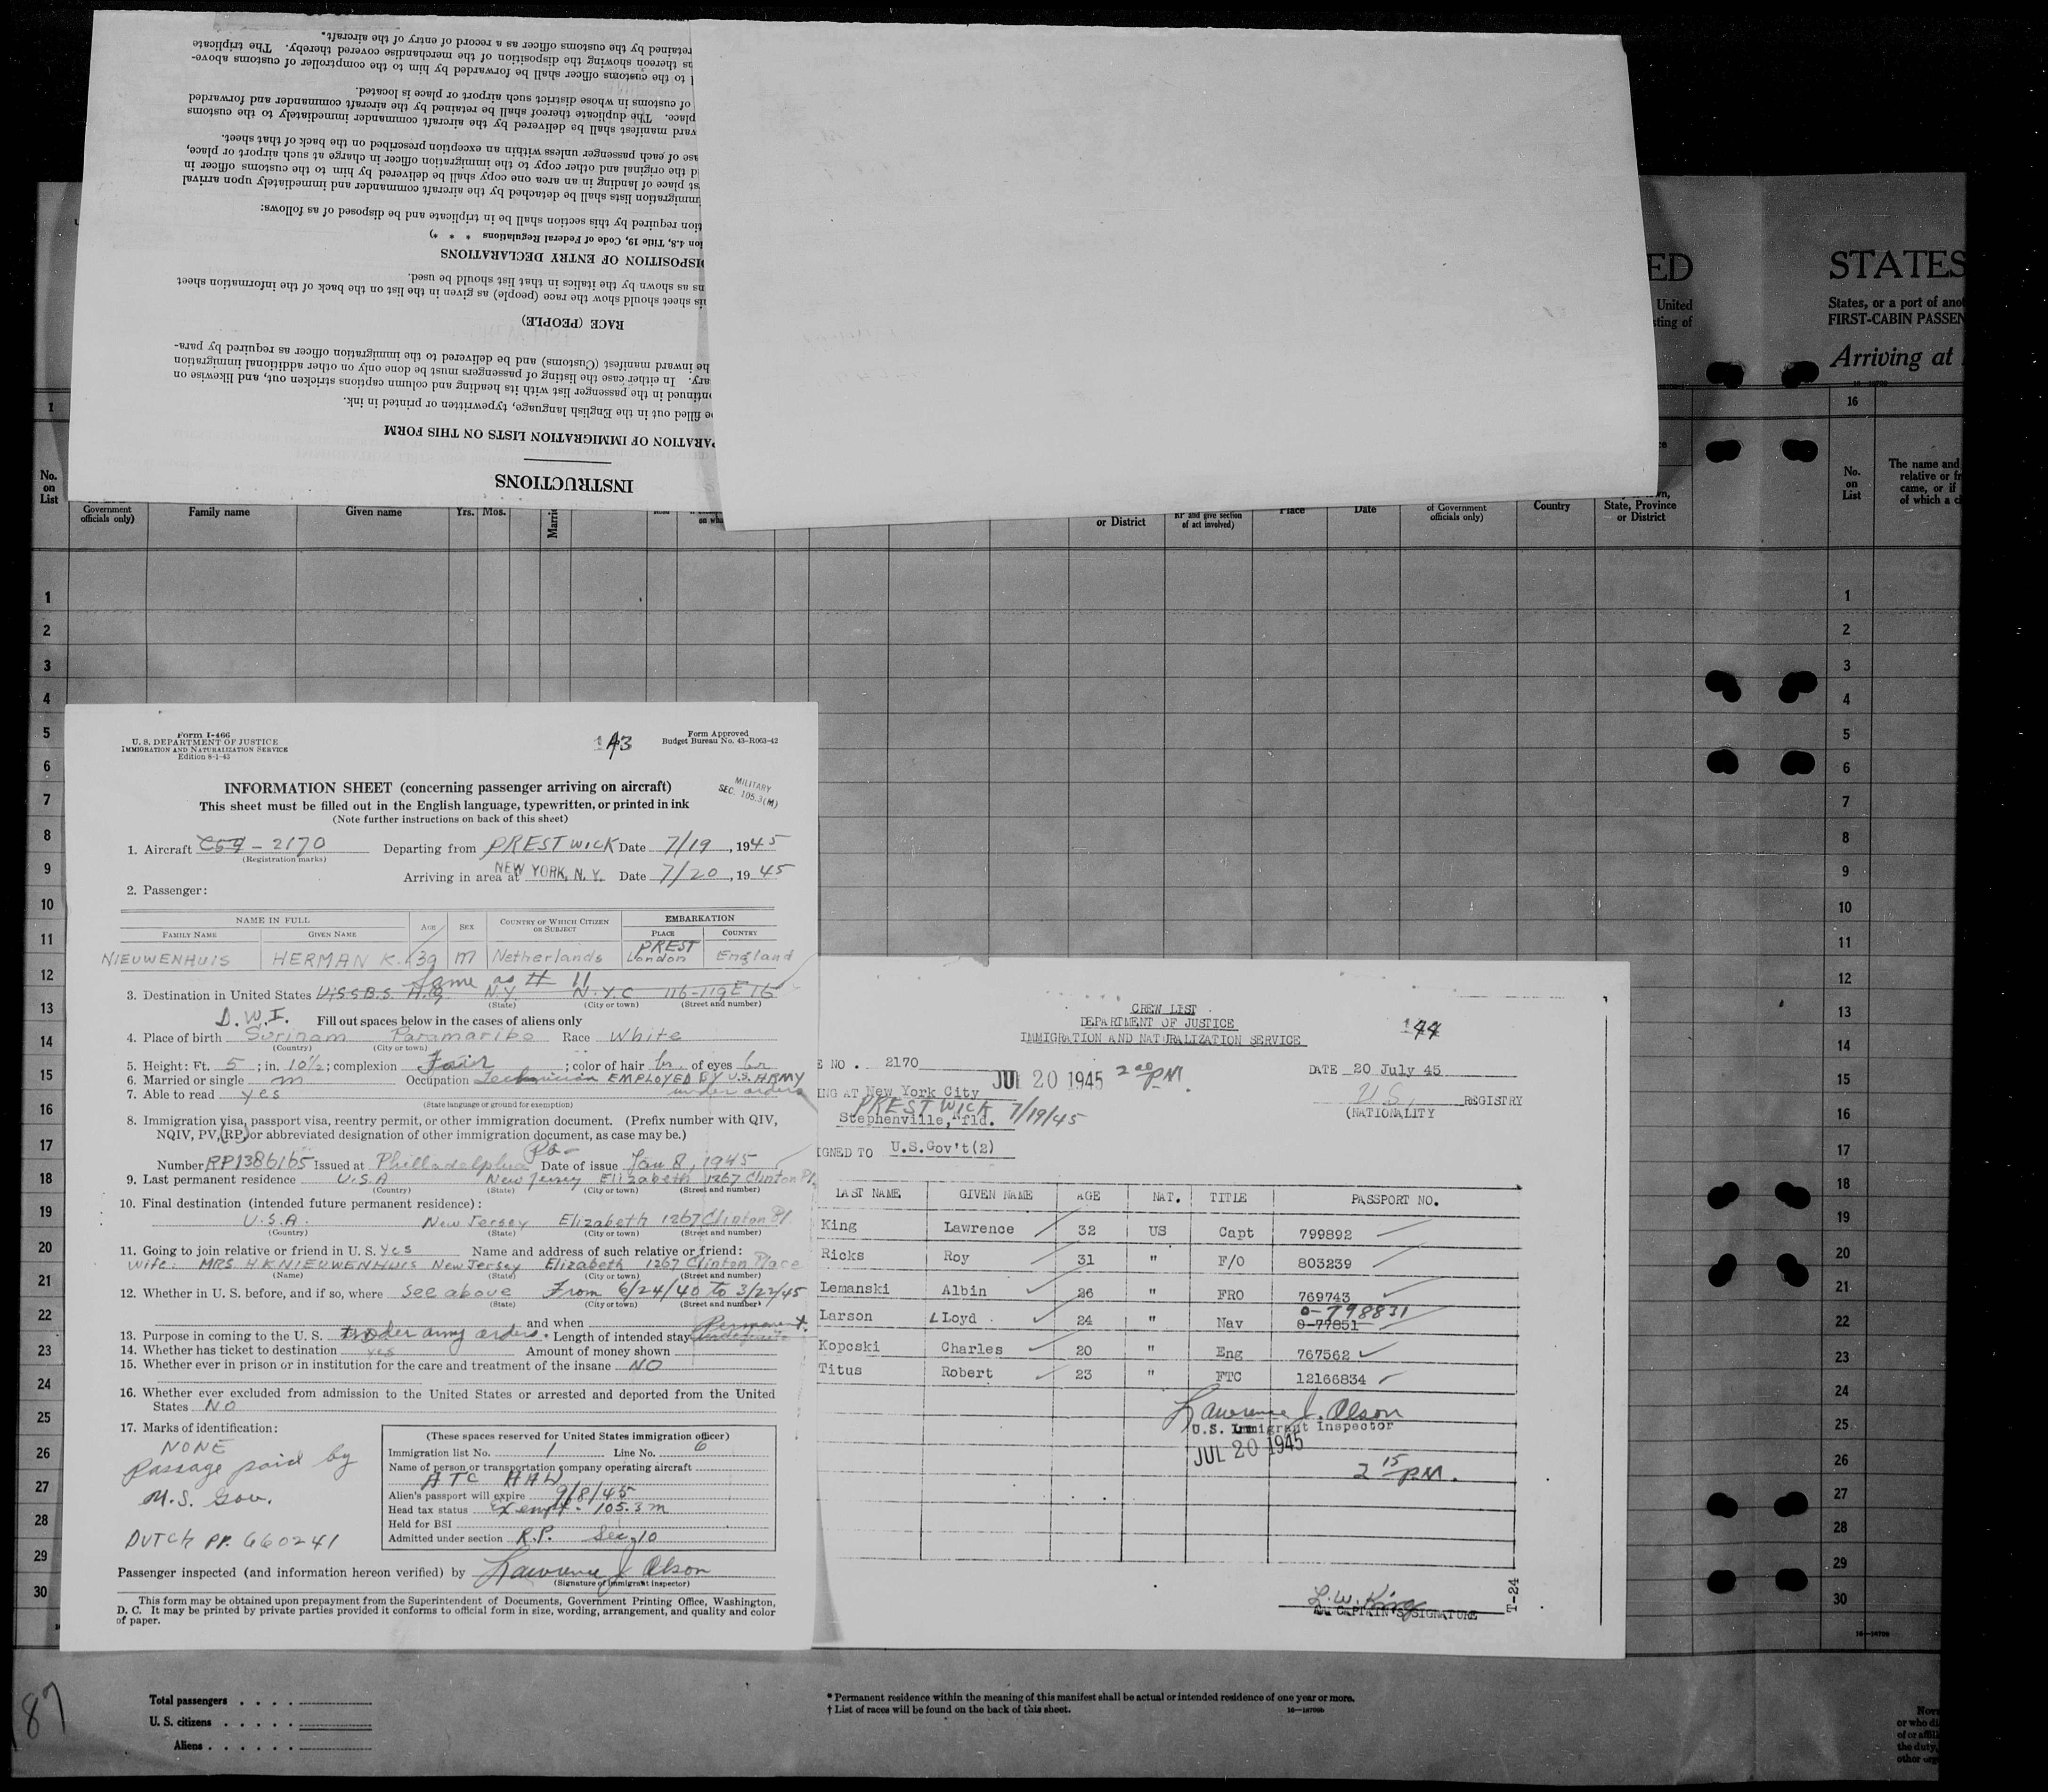 retained by the customs officer as a record of entry of the aircraft.
as thereon showing the disposition of the merchandise covered thereby. The triplicate
l to the customs officer shall be forwarded by him to the comptroller of customs above-
of customs in whose district such airport or place is located.
place. The duplicate thereof shall be retained by the aircraft commander and forwarded
ward manifest shall be delivered by the aircraft commander immediately to the customs
ase of each passenger unless within an exception prescribed on the back of that sheet.
d the original and other copy to the immigration officer in charge at such airport or place,
st place of landing in an area one copy shall be delivered by him to the customs officer in
mmigration lists shall be detached by the aircraft commander and immediately upon arrival
tion required by this section shall be in triplicate and be disposed of as follows:
ion 4.8, Title 19, Code of Federal Regulations * * *)
DISPOSITION OF ENTRY DECLARATIONS
ns as shown by the italics in that list should be used.
his sheet should show the race (people) as given in the list on the back of the information sheet
RACE (PEOPLE)
he inward manifest (Customs) and be delivered to the immigration officer as required by para-
ary. In either case the listing of passengers must be done only on other additional immigration
ontinued in the passenger list with its heading and column captions stricken out, and likewise on
be filled out in the English language, typewritten or printed in ink.
PARATION OF IMMIGRATION LISTS ON THIS FORM
INSTRUCTIONS
ED STATES
United States, or a port of
sting of FIRST-CABIN PASSEN
Arriving at
1 16
No. on List
The name and
relative or
came, or if
of which a
Government officials only) Family name Given name Yrs. Mos.
or District
RP and give section of act involved)
Place Date
of Government officials only)
Country
State, Province or District
1
2
3
4
5
6
7
8
9
10
11
12
13
14
15
16
17
18
19
20
21
22
23
24
25
26
27
28
29
30
Form I-466
U. S. DEPARTMENT OF JUSTICE
IMMIGRATION AND NATURALIZATION SERVICE
Edition 8-1-43
143
Form Approved
Budget Bureau No. 43-R063-42
INFORMATION SHEET (concerning passenger arriving on aircraft)
MILITARY
SEC. 105.3(M)
This sheet must be filled out in the English language, typewritten, or printed in ink
(Note further instructions on back of this sheet)
1. Aircraft C54 - 2170 Departing from PRESTWICK Date 7/19, 1945
(Registration marks)
Arriving in area at NEW YORK, N. Y. Date 7/20, 1945
2. Passenger:
NAME IN FULL AGE SEX COUNTRY OF WHICH CITIZEN OR SUBJECT EMBARKATION
FAMILY NAME GIVEN NAME PLACE COUNTRY
NIEUWENHUIS HERMAN K. 39 M Netherlands PREST London England
Same as # 11
3. Destination in United States U.S.S.B.S. H.Q. N.Y. N.Y.C 116-119 E 16
(State) (City or town) (Street and number)
D.W.I. Fill out spaces below in the cases of aliens only
4. Place of birth Surinam Paramaribo Race White
(Country) (City or town)
5. Height: Ft. 5; in. 10½; complexion Fair; color of hair br. of eyes br
6. Married or single m Occupation Technician EMPLOYED BY U.S. ARMY
7. Able to read yes under orders
(State language or ground for exemption)
8. Immigration visa, passport visa, reentry permit, or other immigration document. (Prefix number with QIV,
NQIV, PV, RP, or abbreviated designation of other immigration document, as case may be.)
Number RP1386165 Issued at Philladelphia Pa Date of issue Jan 8, 1945
9. Last permanent residence U.S.A New Jersey Elizabeth 1267 Clinton Pl.
(Country) (State) (City or town) (Street and number)
10. Final destination (intended future permanent residence):
U.S.A. New Jersey Elizabeth 1267 Clinton Pl.
(Country) (State) (City or town) (Street and number)
11. Going to join relative or friend in U. S. Yes Name and address of such relative or friend:
wife: MRS H.K NIEUWENHUIS New Jersey Elizabeth 1267 Clinton Place
(Name) (State) (City or town) (Street and number)
12. Whether in U. S. before, and if so, where See above From 6/24/40 to 3/22/45
(State) (City or town) (Street and number)
and when
13. Purpose in coming to the U. S. under army orders. Length of intended stay Permanent. indefinite
14. Whether has ticket to destination yes Amount of money shown
15. Whether ever in prison or in institution for the care and treatment of the insane NO
16. Whether ever excluded from admission to the United States or arrested and deported from the United
States NO
17. Marks of identification:
NONE
Passage paid by
U.S. Gov.
DUTCH PP. 660241
(These spaces reserved for United States immigration officer)
Immigration list No. 1 Line No. 6
Name of person or transportation company operating aircraft
ATC AAW
Alien's passport will expire 9/8/45
Head tax status Exempt - 105.3 m
Held for BSI
Admitted under section R.P. Sec. 10
Passenger inspected (and information hereon verified) by Lawrence J Olson
(Signature of immigrant inspector)
This form may be obtained upon prepayment from the Superintendent of Documents, Government Printing Office, Washington,
D. C. It may be printed by private parties provided it conforms to official form in size, wording, arrangement, and quality and color
of paper.
CREW LIST
DEPARTMENT OF JUSTICE
IMMIGRATION AND NATURALIZATION SERVICE
144
E NO. 2170
JUL 20 1945 2 20 PM.
DATE 20 July 45
ING AT New York City
PRESTWICK 7/19/45
Stephenville, Nfld.
U.S. REGISTRY
(NATIONALITY
IGNED TO U.S.Gov't(2)
LAST NAME GIVEN NAME AGE NAT. TITLE PASSPORT NO.
King Lawrence 32 US Capt 799892
Ricks Roy 31 " F/O 803239
Lemanski Albin 26 " FRO 769743
Larson LLoyd 24 " Nav 0-77851 0-798831
Kopcski Charles 20 " Eng 767562
Titus Robert 23 " FTC 12166834
Lawrence J. Olson
U.S. Immigrant Inspector
JUL 20 1945
2 15 PM.
L.W. King
CAPTAIN'S SIGNATURE
T-24
87
Total passengers . . . .
U. S. citizens . . . . .
Aliens . . . . . .
* Permanent residence within the meaning of this manifest shall be actual or intended residence of one year or more.
† List of races will be found on the back of this sheet.
or who
of or
the duty,
other